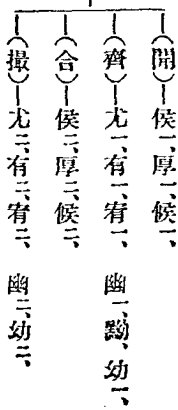 （開）—侯一、厚一、候一、
（齊）—尤一、有一、宥一、　幽一、黝一、幼一、
（合）—侯二、厚二、候二、
（撮）—尤二、有二、宥二、　幽二、幼二、